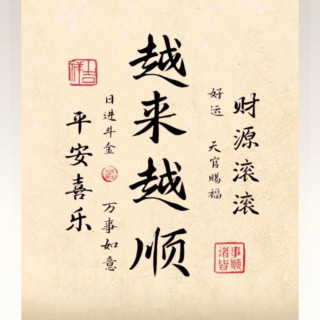 财源滚滚
好运 天官赐福
越来越顺
日进斗金 万事如意
平安喜乐
上吉祥
诸事皆顺